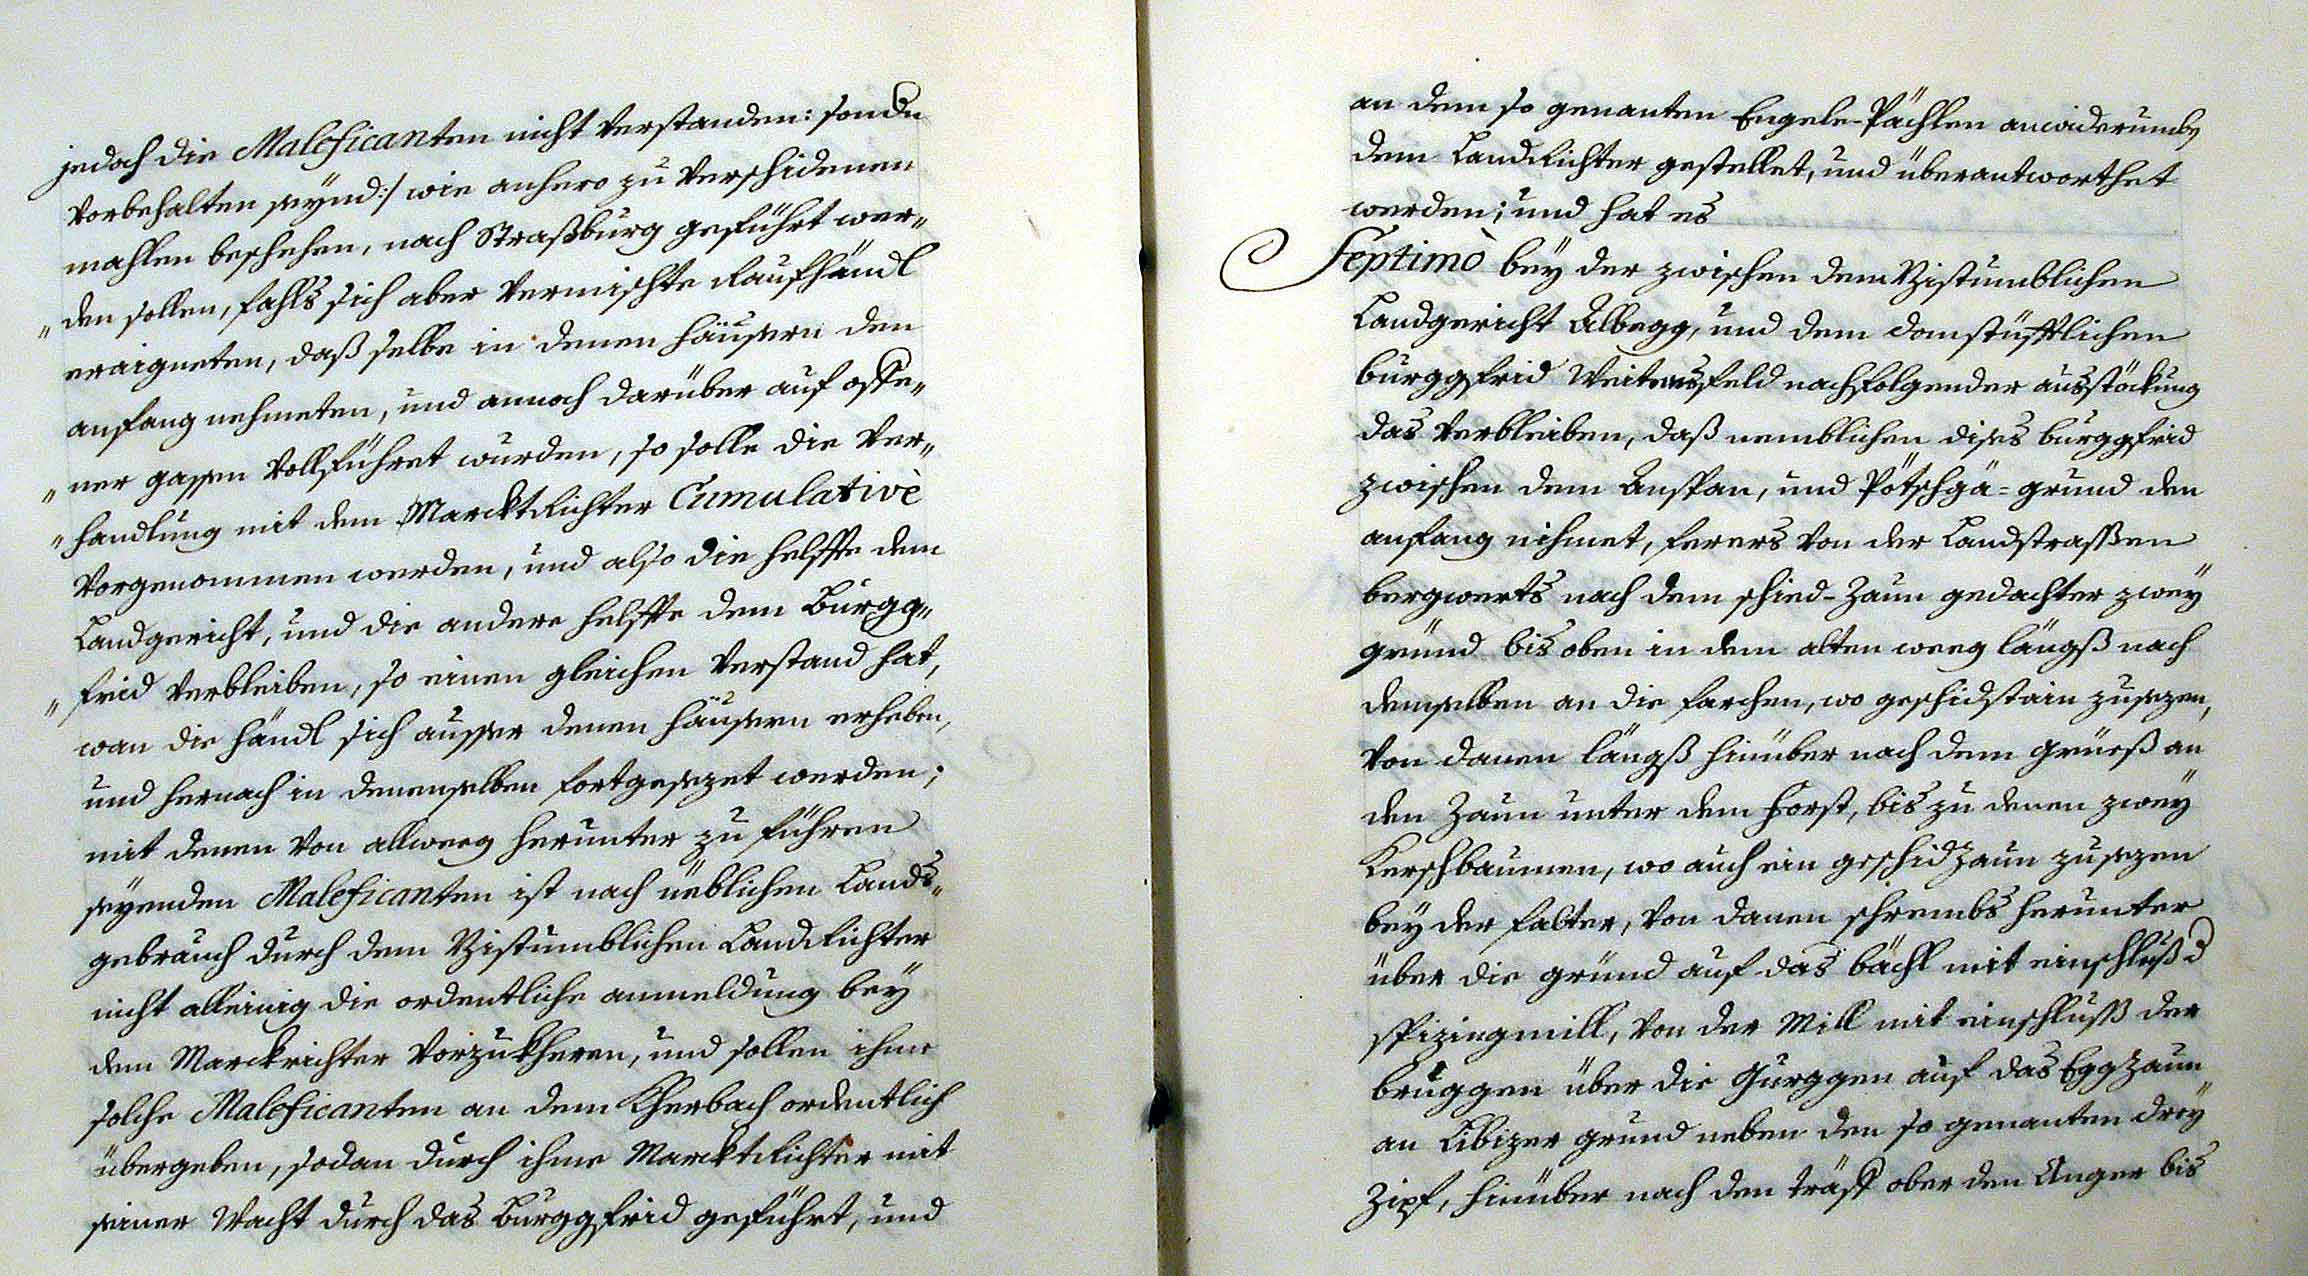 jedoch die Maleficanten nicht verstanden: sondern
vorbehalten seÿnd:/ wie anhero zu verschidenen
mahlen beschehen, nach Straßburg geführt wer„
„den sollen, fahls sich aber vermischte Raufhändl
eraigneten, daß selbe in denen häusern den
anfang nehmeten, und annoch darüber auf offe„
„ner gassen vollführet wurden, so solle die ver„
„handlung mit dem MarcktRichter Cumulativè
vorgenommen werden, und also die helffte dem
Landgericht, und die andere helffte dem Burgg„
„frid verbleiben, so einen gleichen verstand hat,
wan die händl sich ausser denen häusern erheben,
und hernach in denenselben fortgesezet werden;
mit denen von allweeg herunter zu führen
seÿenden Maleficanten ist nach üeblichen Lands„
gebrauch durch dem Vistumblichen LandRichter
nicht alleinig die ordentliche anmeldung beÿ
dem Marckrichter vorzukheren, und sollen ihme
solche Maleficanten an dem Kherbach ordentlich
übergeben, sodan durch ihme MarcktRichter mit
seiner Wacht durch das Burggfrid geführt, und
an dem so genanten Engele-Pächlen anwiderumb
dem LandRichter gestellet, und überantworthet
werden; und hat es
Septimò beÿ der zwischen dem Vistumblichen
Landgericht Albegg, und dem domstüfftlichen
burggfrid Weitensfeld nachfolgender ausstöckung
das verbleiben, daß nemblichen dises burggfrid
zwischen dem Anspan, und Pötschgä=grund den
anfang nihmet, ferers von der Landstrassen
bergwerts nach dem schied-Zaun gedachter zweÿ
gründ bis oben in dem alten weeg längß nach
demselben an die farchen, wo geschidstain zusezen,
von danen längß hinüber nach dem grieß an
den Zaun unter dem Forst, bis zu denen zweÿ
Kerschbaumen, wo auch ein geschidzaun zusezen
beÿ der falter, von danen schrembs herunter
über die gründ auf das bächl mit einschluß d
spizingmill, von der Mill mit einschluss der
bruggen über die Gurggen auf das Eggzaun
an Libizer grund neben den so genanten dreÿ
Zipf, hinüber nach den träff ober den Anger bis